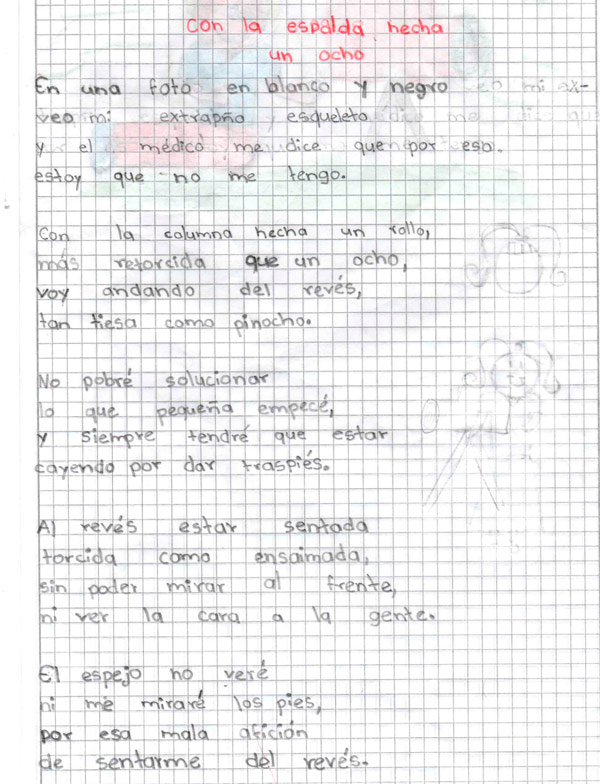 Con la espalda hecha
un ocho
En una foto en blanco y negro
veo mi extrapño esqueleto
y el médico me dice que por eso.
estoy que no me tengo.
Con la columna hecha un rollo,
más retorcida que un ocho,
voy andando del revés,
tan tiesa como pinocho.
No pobré solucionar
lo que pequeña empecé,
y siempre tendré que estar
cayendo por dar traspiés.
Al revés estar sentada
torcida como ensaimada,
sin poder mirar al frente,
ni ver la cara a la gente.
El espejo no veré
ni me miraré los pies,
por esa mala afición
de sentarme del revés.